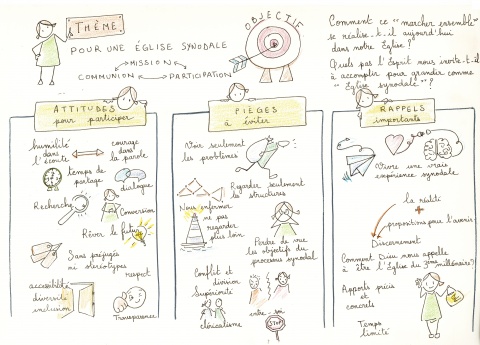 THÈME:
POUR UNE ÉGLISE SYNODALE
MISSION
COMMUNION
PARTICIPATION
OBJECTIF
Comment ce "marcher ensemble"
se réalise-t-il aujourd'hui
dans notre Église?
Quels pas l'Esprit nous invite-t-il
à accomplir pour grandir comme
"Église synodale"?
ATTITUDES
pour participer
humilité
dans
l'écoute
courage
dans
la parole
temps de
partage
dialogue
Recherche
Conversion
Rêver le futur
Sans préjugés
ni stéréotypes
respect
accessibilité
diversité
inclusion
Transparence
PIÈGES
à éviter
Voir seulement
les problèmes
Regarder seulement
les structures
Nous enfermer
ne pas
regarder
plus loin
Perdre de vue
les objectifs du
processus synodal
Conflit et
division
Supériorité
cléricalisme
entre-soi
STOP
RAPPELS
importants
Vivre une vraie
expérience synodale
la réalité
+
propositions pour l'avenir
Discernement
Comment Dieu nous appelle
à être l'Église du 3ème millénaire?
Apports précis
et
concrets
Temps
limité